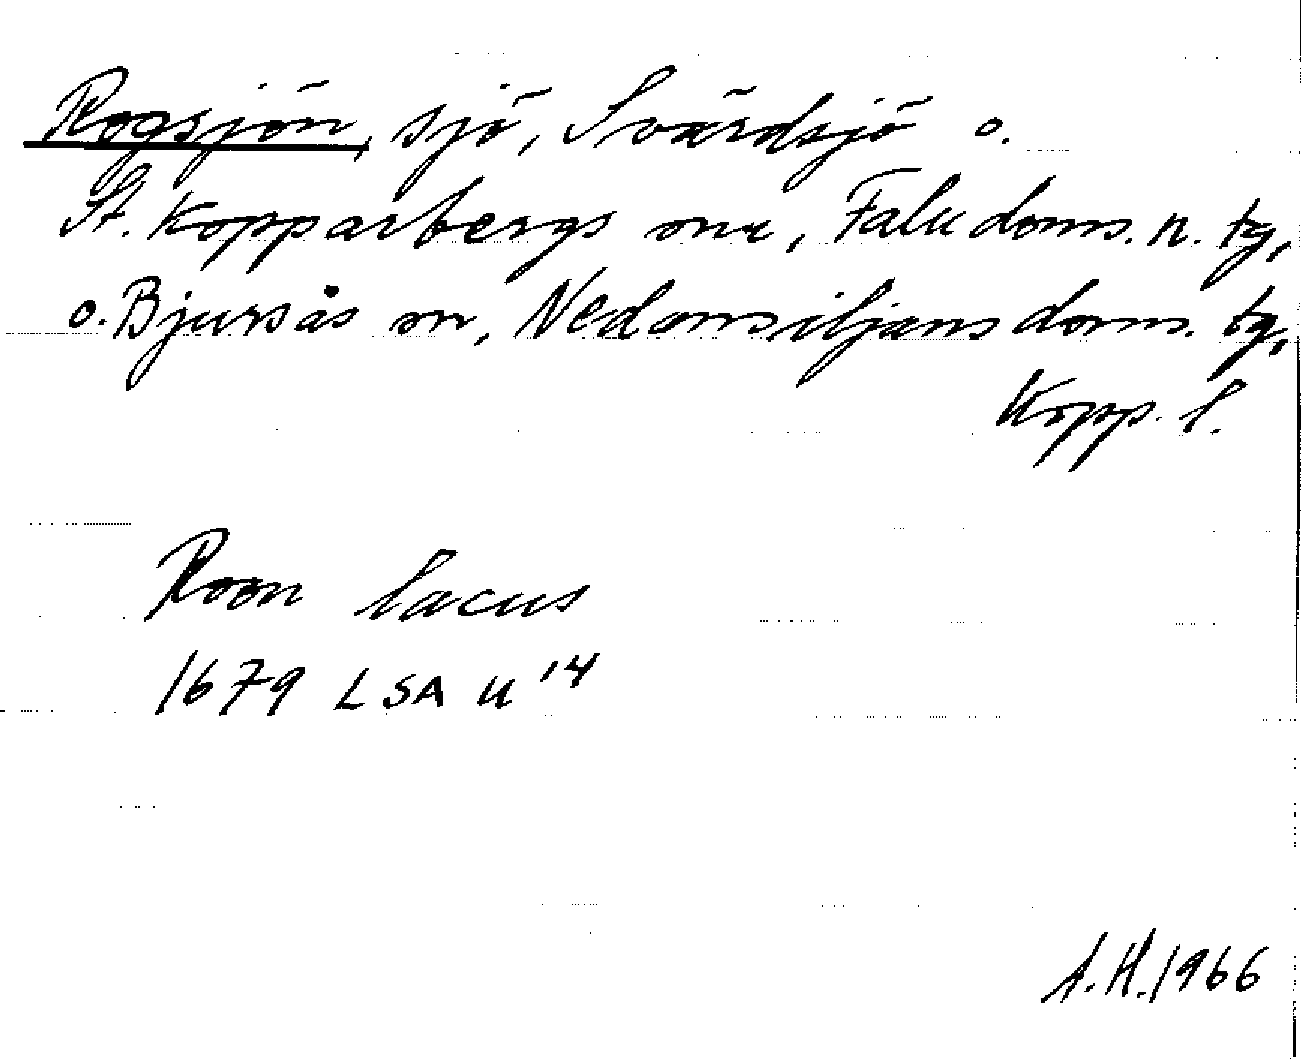 Rogsjön, sjö, Svärdsjö o.
St. Kopparbergs snr, Falu doms. n. tg,
o. Bjursås sn, Nedansiljans doms. tg,
Kopp. l.
Roen lacus
1679 LSA U 14
A.H. 1966